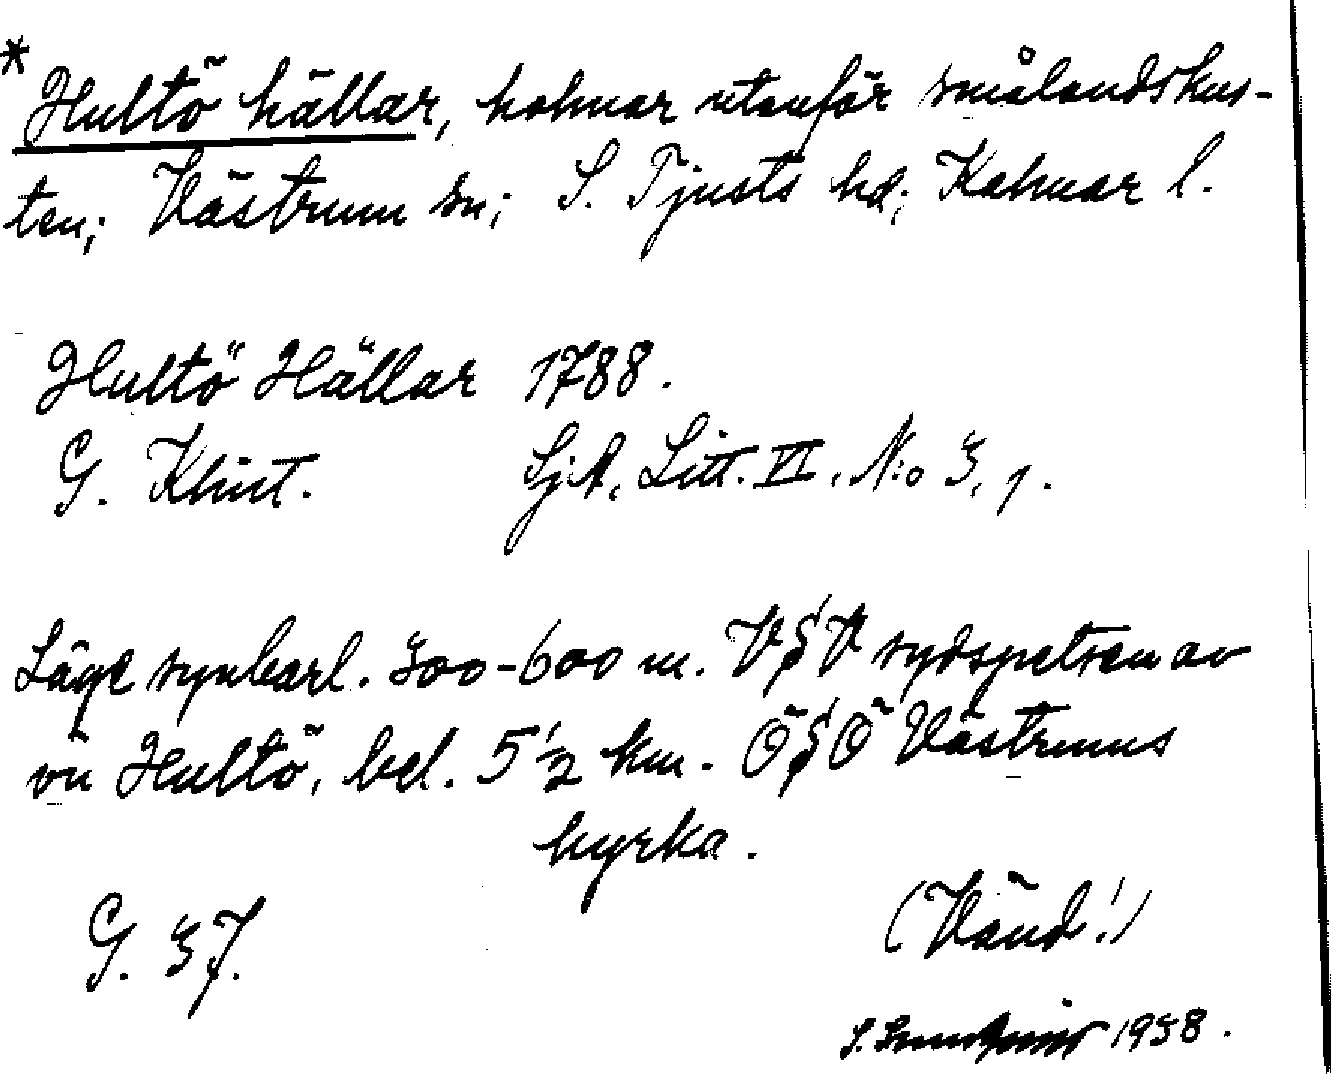 * Hultö hällar, holmar utanför smålandskus-
ten; Västrum sn; S. Tjusts hd; Kalmar l.
Hultö Hällar 1788.
G. Klint. SjA, Litt. VI, N:o 3, 1.
Läge synbarl. 300-600 m. VSV sydspetsen av
ön Hultö, bel. 5 1/2 km. ÖSÖ Västrums
kyrka.
G. 37.
(Vänd!)
S. 1938.